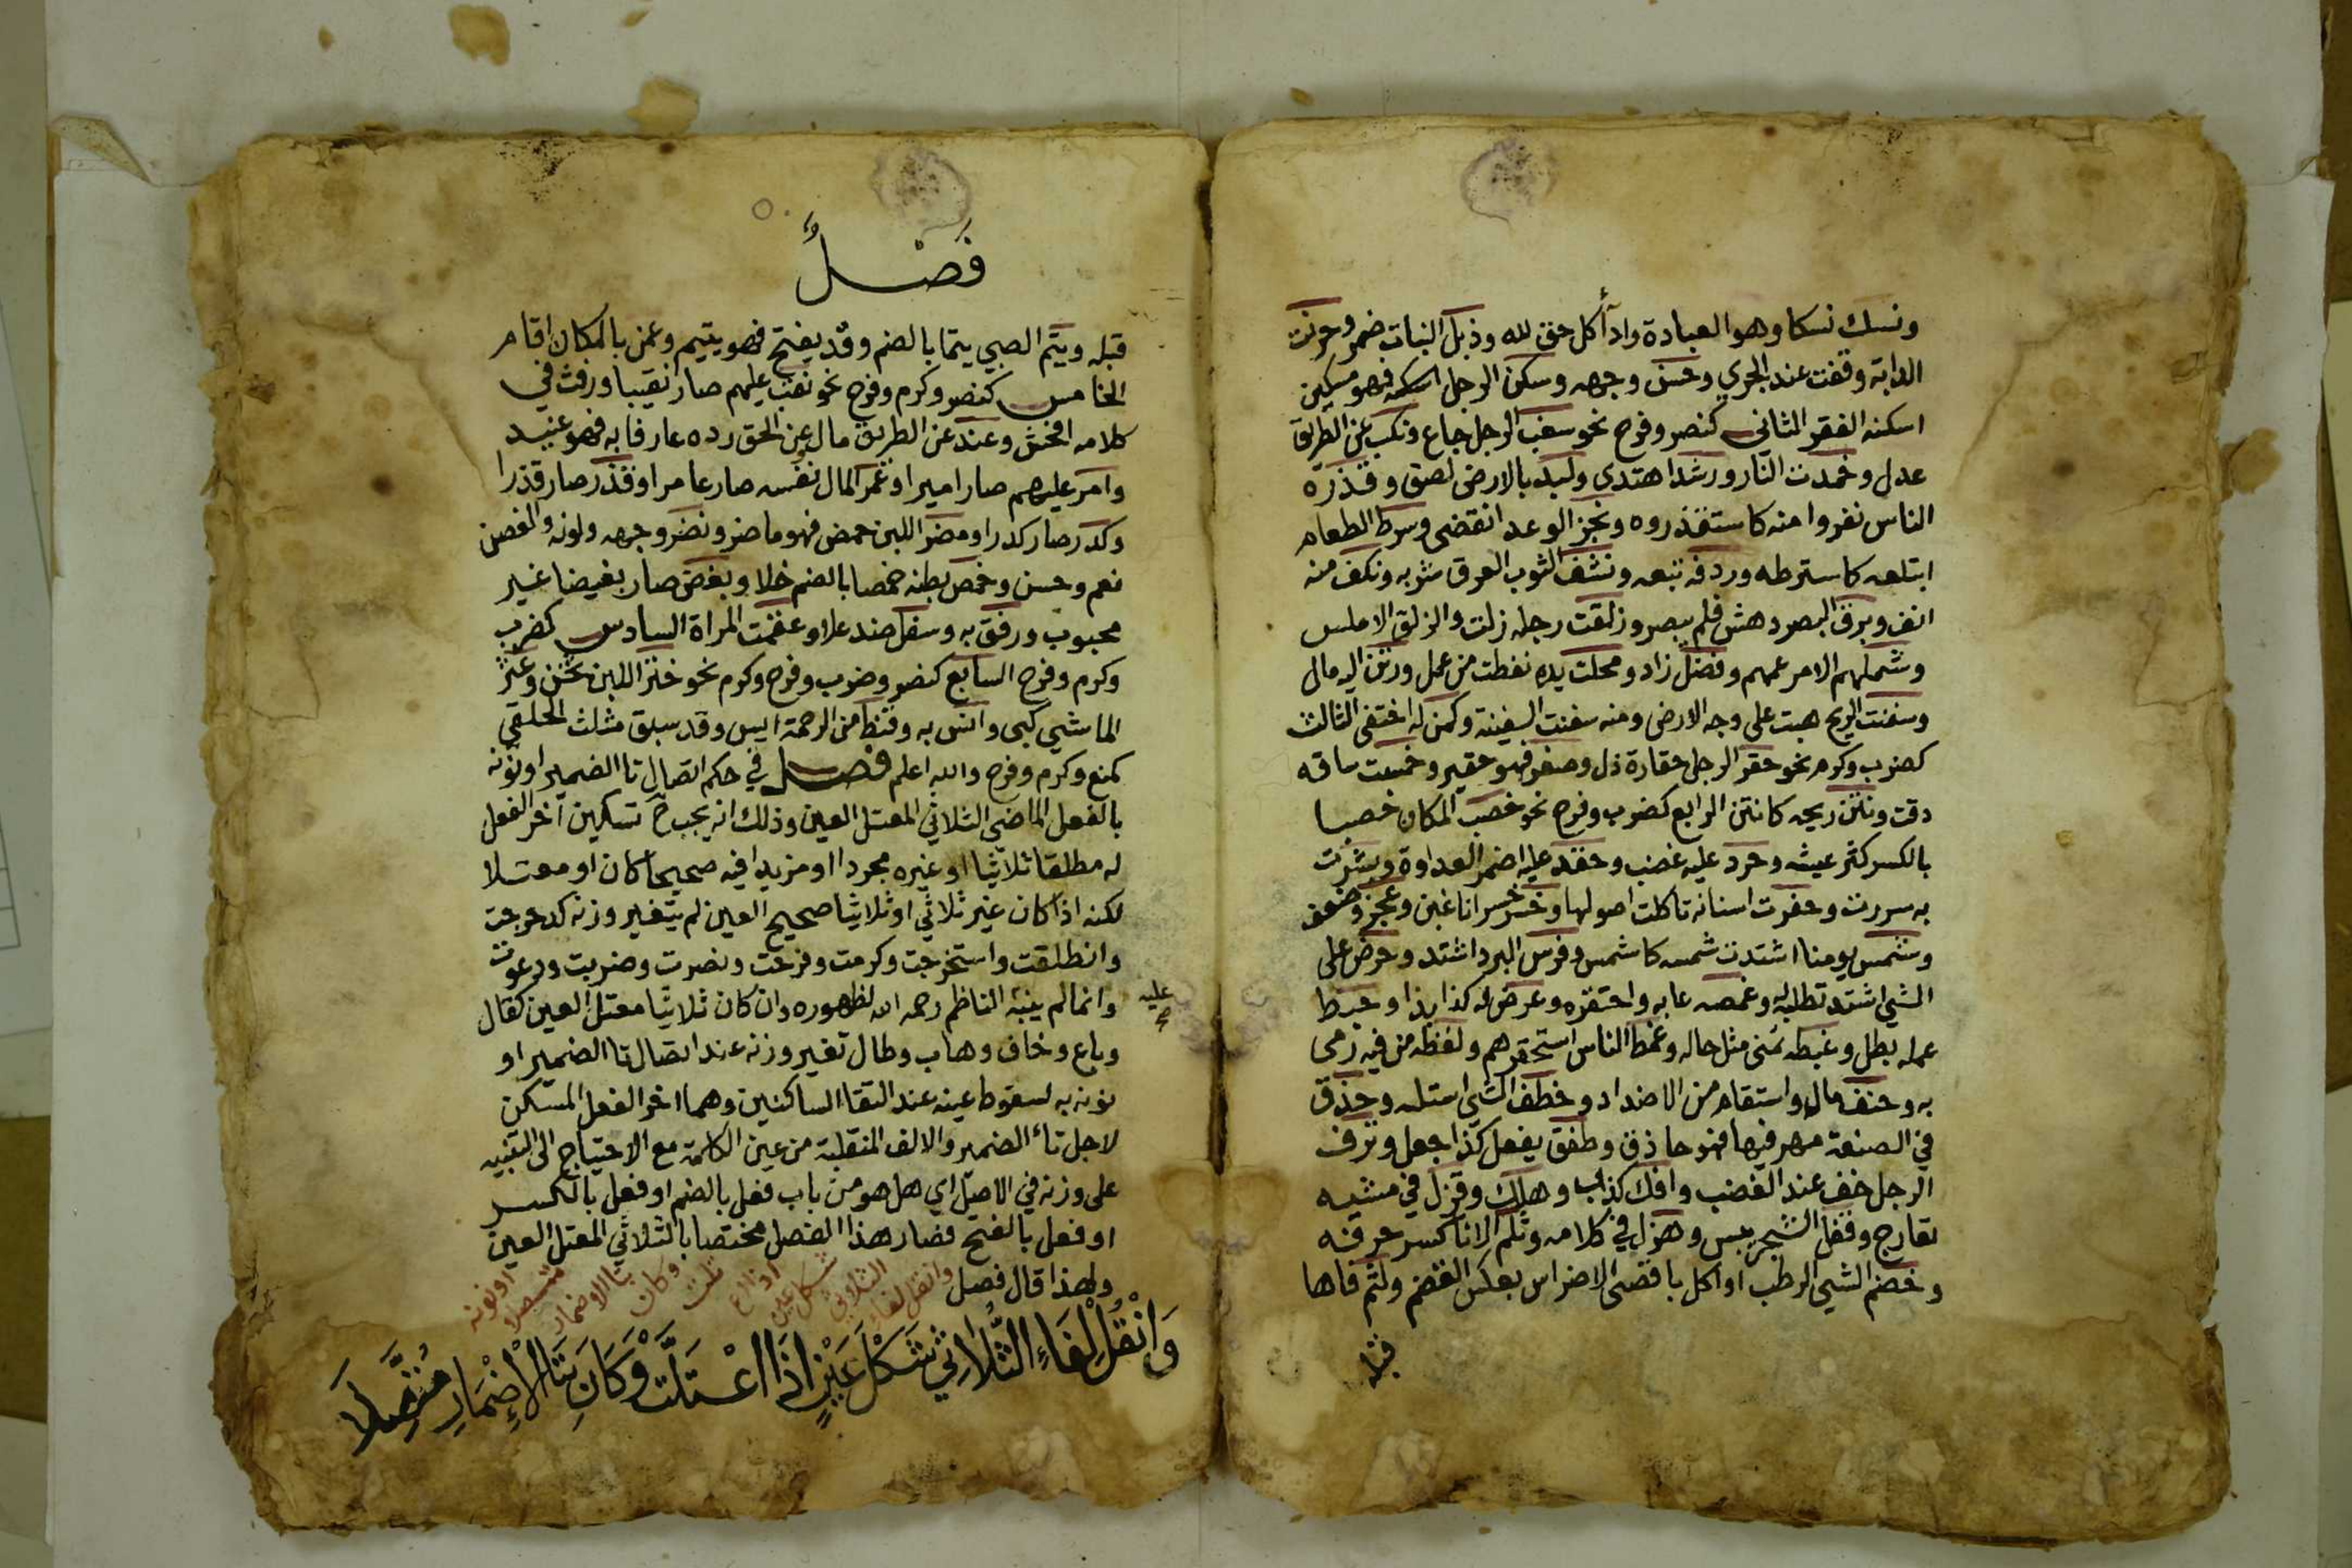 ونسك نسكا وهو العبادة واداأ كل حق لله وذبل النبات ضمر وحرنت
الدابة وقفت عند الجري وحسن وجهه وسكن الرجل اسكنه فهو مسكين
اسكنه الفقر الثاني كنصر وفرح نحو سغب الرجل جاع ونكب عن الطريق
عدل وخمدت النار ورشد اهتدى ولبد بالارض لصق وقذره
الناس نفروا منه كاستقذروه ونجز الوعد انقضى وسرط الطعام
ابتلعه كاسترطه وردفه تبعه ونشف الثوب العرق شربه ونكف منه
انف وبرق البصر دهش فلم يبصر وزلقت رجله زلت والزلق الاملس
وشملهم الامر عمهم وفضل زاد ومجلت يده نفطت من عمل وركن اليه مال
وسفنت الريح هبت على وجه الارض ومنه سفنت السفينة وكمن له اختفى الثالث
كضرب وكرم نحو حقر الرجل حقارة ذل وصغر فهو حقير وحمشت ساقه
دقت ونتن ريحه كانتن الرابع كضرب وفرح نحو خصب المكان خصبا
بالكسر كثر عيشه وحرد عليه غضب وحقد عليه اضمر العداوة وبشرت
به سررت وحفرت اسنانه تاكلت اصولها وخسر خسرانا غبن وعجز وضعف
وشمس يومنا اشتدت شمسه كاشمس وقرس البرد اشتد وحرص على
الشي اشتد تطلبه وغمصه عابه واحتقره وعرض له كذا بدا وحبط
عمله بطل وغبطه تمنى مثل حاله وغمط الناس استحقرهم ولفظه من فيه رمى
به وحنف مال واستقام من الاضداد وخطف الشي استلبه وحذق
في الصنعة مهر فيها فهو حاذق وطفق يفعل كذا جعل ونزف
الرجل خف عند الغضب وافك كذب وهلك وقزل في مشيه
تعارج وقفل الشجر يبس وهزل في كلامه وثلم الانا كسر حرفه
وخضم الشي الرطب او اكل باقصى الاضراس بعكس القضم ولثم فاها
قبله
فَصْلٌ
قبله ويتم الصبي يتما بالضم وقد يفتح فهو يتيم وعمن بالمكان اقام
الخامس كنصر وكرم وفرح نحو نقب عليهم صار نقيبا ورفث في
كلامه افحش وعند عن الطريق مال وعن الحق رده عارفا به فهو عنيد
وامر عليهم صار اميرا وعمر المال نفسه صار عامرا وقذر صار قذرا
وكدر صار كدرا ومضر اللبن حمض فهو ماضر ونضر وجهه ولونه والغصن
نعم وحسن وخمص بطنه خمصا بالضم خلا وبغض صار بغيضا غير
محبوب ورفق به وسفل ضد علا وعقمت المراة السادس كضرب
وكرم وفرح السابع كنصر وضرب وفرح وكرم نحو خثر اللبن ثخن وعثر
الماشي كبى وانس به وقنط من الرحمة ايس وقد سبق مثلث الحلقي
كمنع وكرم وفرح والله اعلم فصل في حكم اتصال تا الضمير او نونه
بالفعل الماضي الثلاثي المعتل العين وذلك انه يجب ح تسكين آخر الفعل
له مطلقا ثلاثيا او غيره مجردا او مزيدا فيه صحيحا كان او معتلا
لكنه اذا كان غير ثلاثي او ثلاثيا صحيح العين لم يتغير وزنه كدحرجت
وانطلقت واستخرجت وكرمت وفرحت ونصرت وضربت ودعوت
عليه
صح
وانما لم ينبه الناظم رحمه الله لظهوره وان كان ثلاثيا معتل العين كقال
وباع وخاف وهاب وطال تغير وزنه عند اتصال تا الضمير او
نونه به لسقوط عينه عند التقا الساكنين وهما اخر الفعل المسكن
لاجل تاء الضمير والالف المنقلبة من عين الكلمة مع الاحتياج الى التنبيه
على وزنه في الاصل اي هل هو من باب فعل بالضم او فعل بالكسر
او فعل بالفتح فصار هذا الفصل مختصا بالثلاثي المعتل العين
ولهذا قال فصل وانقل لفاء الثلاثي شكل عين اذا اع تلت وكان بتا الاضمار متصلا او نونه
وَانْقُلْ لِفَاءِ الثُّلَاثِيْ شَكْلَ عَيْنٍ اذَا اعْتَلَّتْ وَكَانَ بِتَا الْإِضْمَارِ مُتَّصِلَا